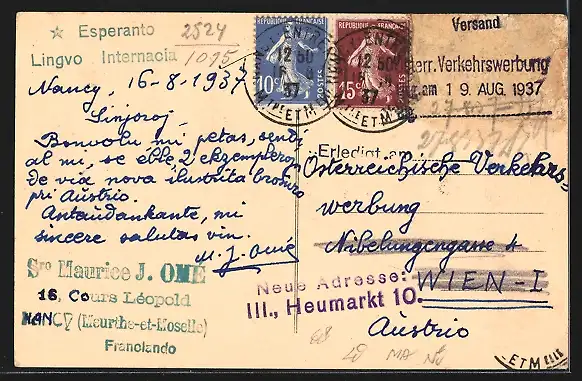 ☆ Esperanto
Lingvo Internacia
2524
1095
Nancy, 16-8-1937
Sinjoroj,
Bonvolu mi petas, sendi
al mi, se eble 2 ekzempleroj
de via nova ilustrita broŝuro
pri Aŭstrio.
Antaŭdankante, mi
sincere salutas vin.
M. J. Omé
Sro Maurice J. OMÉ
16, Cours Léopold
NANCY (Meurthe-et-Moselle)
Franclando
REPUBLIQUE FRANÇAISE
10c
POSTES
REPUBLIQUE FRANÇAISE
15c
POSTES
12 50
37
12 50
37
Versand
err. Verkehrswerbung
am 19 AUG. 1937
Erledigt am
Österreichische Verkehrs-
werbung
Nibelungengasse 4
WIEN-I
Neue Adresse:
III., Heumarkt 10.
Aŭstrio
ET M